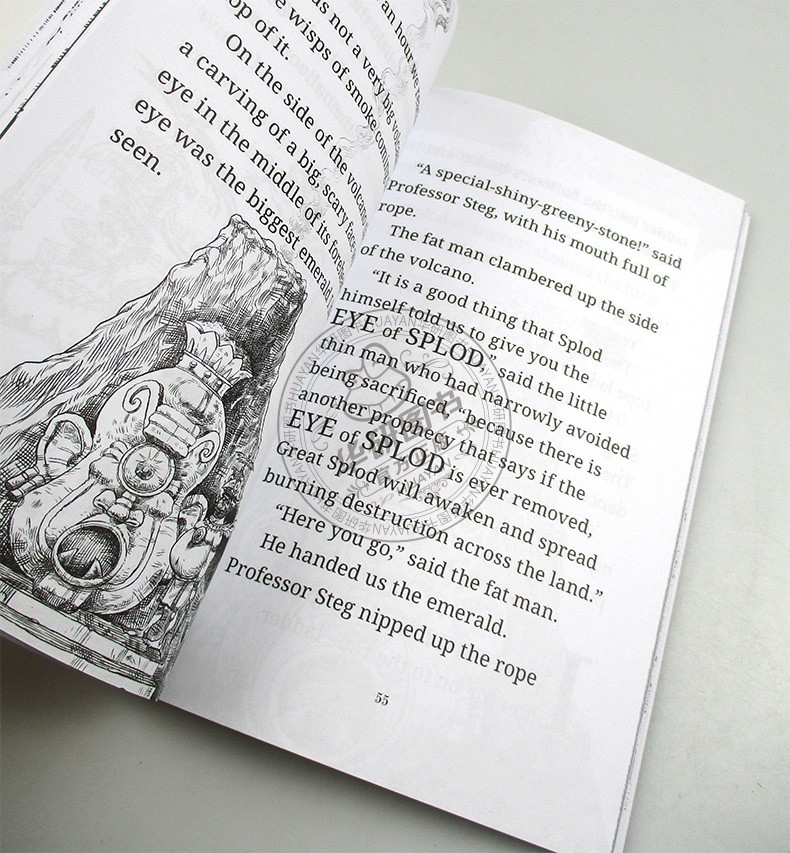 an hour we
as not a very big vol
e wisps of smoke com
op of it.
On the side of the volcano
a carving of a big, scary face,
eye in the middle of its foreh
eye was the biggest emerald
seen.
“A special-shiny-greeny-stone!” said
Professor Steg, with his mouth full of
rope.
The fat man clambered up the side
of the volcano.
“It is a good thing that Splod
himself told us to give you the
EYE of SPLOD,” said the little
thin man who had narrowly avoided
being sacrificed, “because there is
another prophecy that says if the
EYE of SPLOD is ever removed,
Great Splod will awaken and spread
burning destruction across the land.”
“Here you go,” said the fat man.
He handed us the emerald.
Professor Steg nipped up the rope
55
华研图书
HUAYAN华研图书